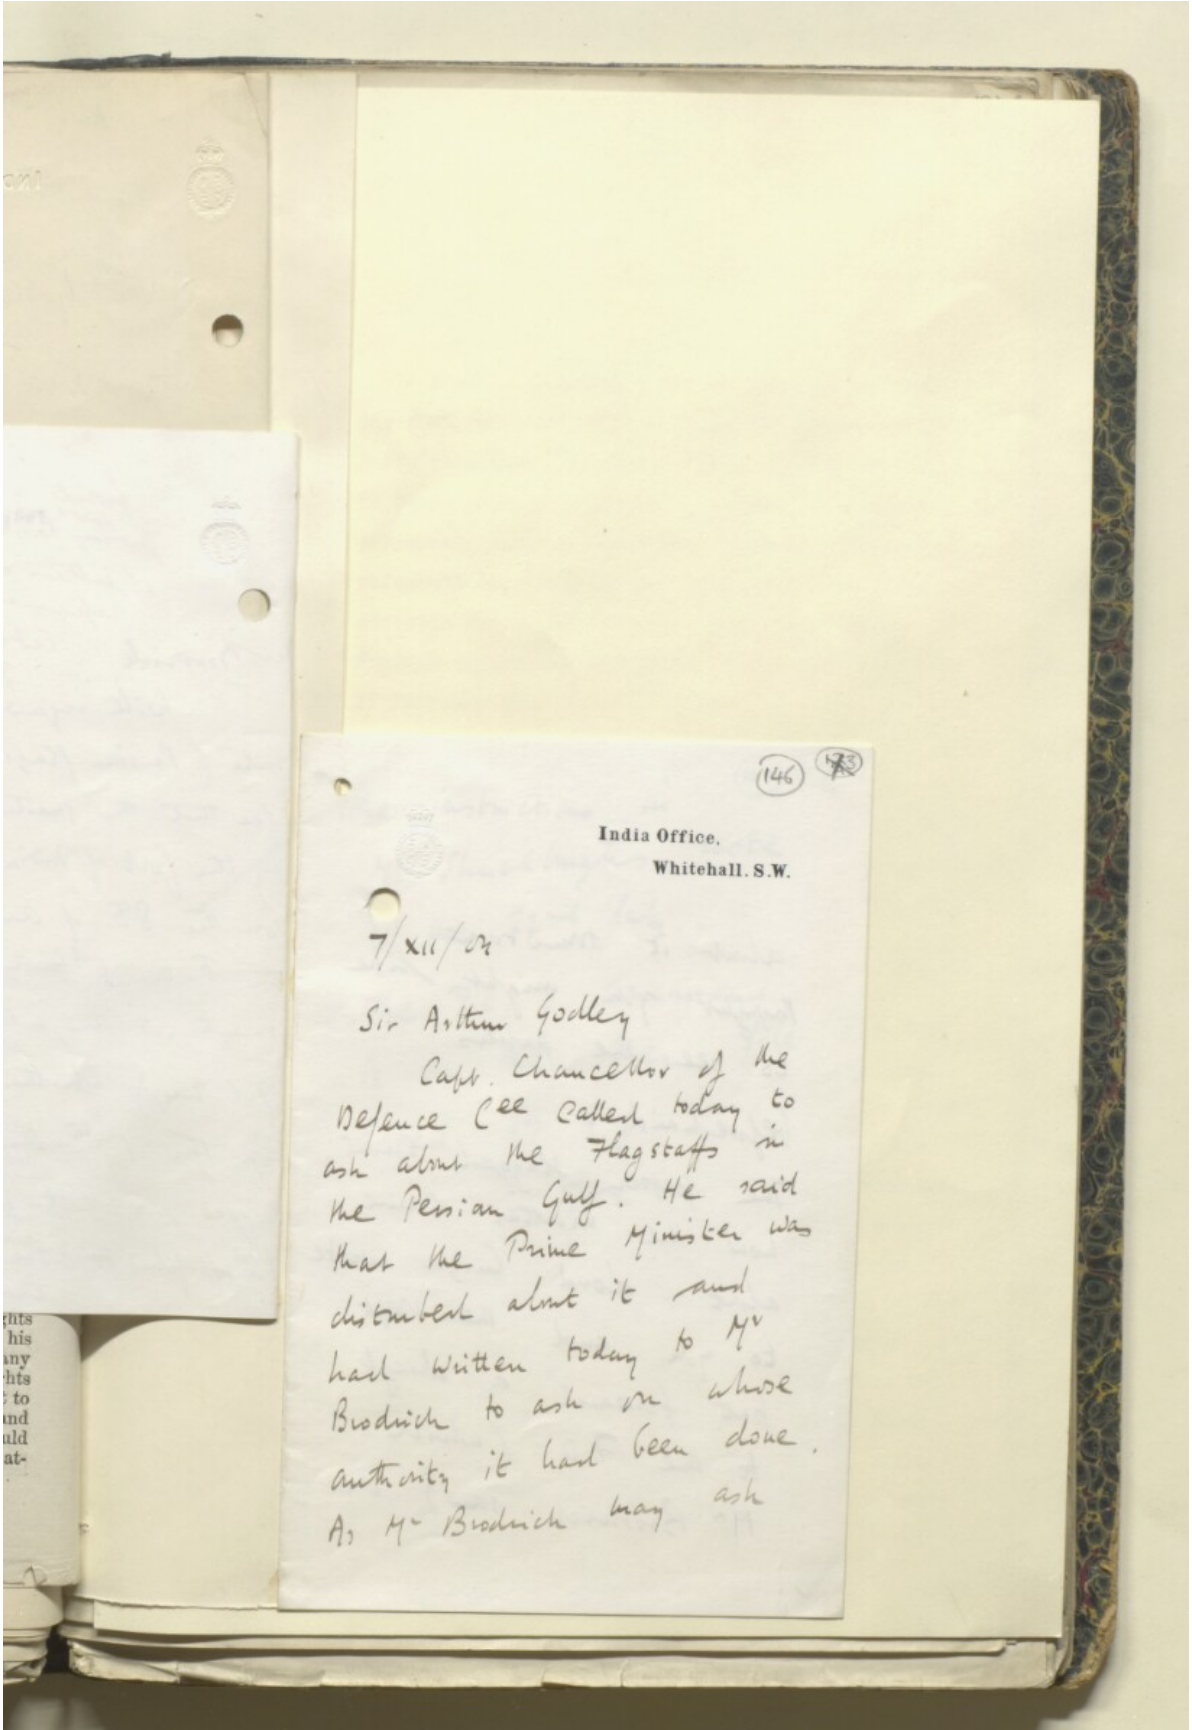 146
India Office,
Whitehall. S.W.
7/XII/04
Sir Arthur Godley
Capt. Chancellor of the
Defence Cee called today to
ask about the Flagstaffs in
the Persian Gulf. He said
that the Prime Minister was
disturbed about it and
had written today to Mr
Brodrick to ask on whose
authority it had been done.
As Mr Brodrick may ask
ghts
his
any
hts
to
and
uld
at-